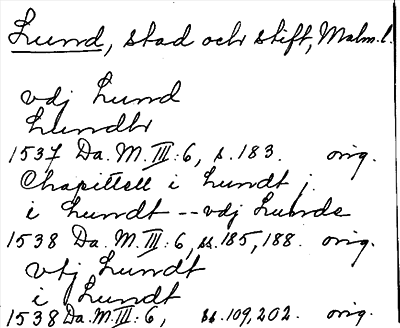 Lund, stad och stift, Malm. l.
vdj Lund
Lundhr
1537 Da. M. III: 6, s. 183. orig.
Chapittell i Lundt j.
i Lundt -- vdj Lunde
1538 Da. M. III: 6, ss. 185, 188. orig.
vtj Lundt
i Lundt
1538 Da. M. III: 6, ss. 109, 202. orig.